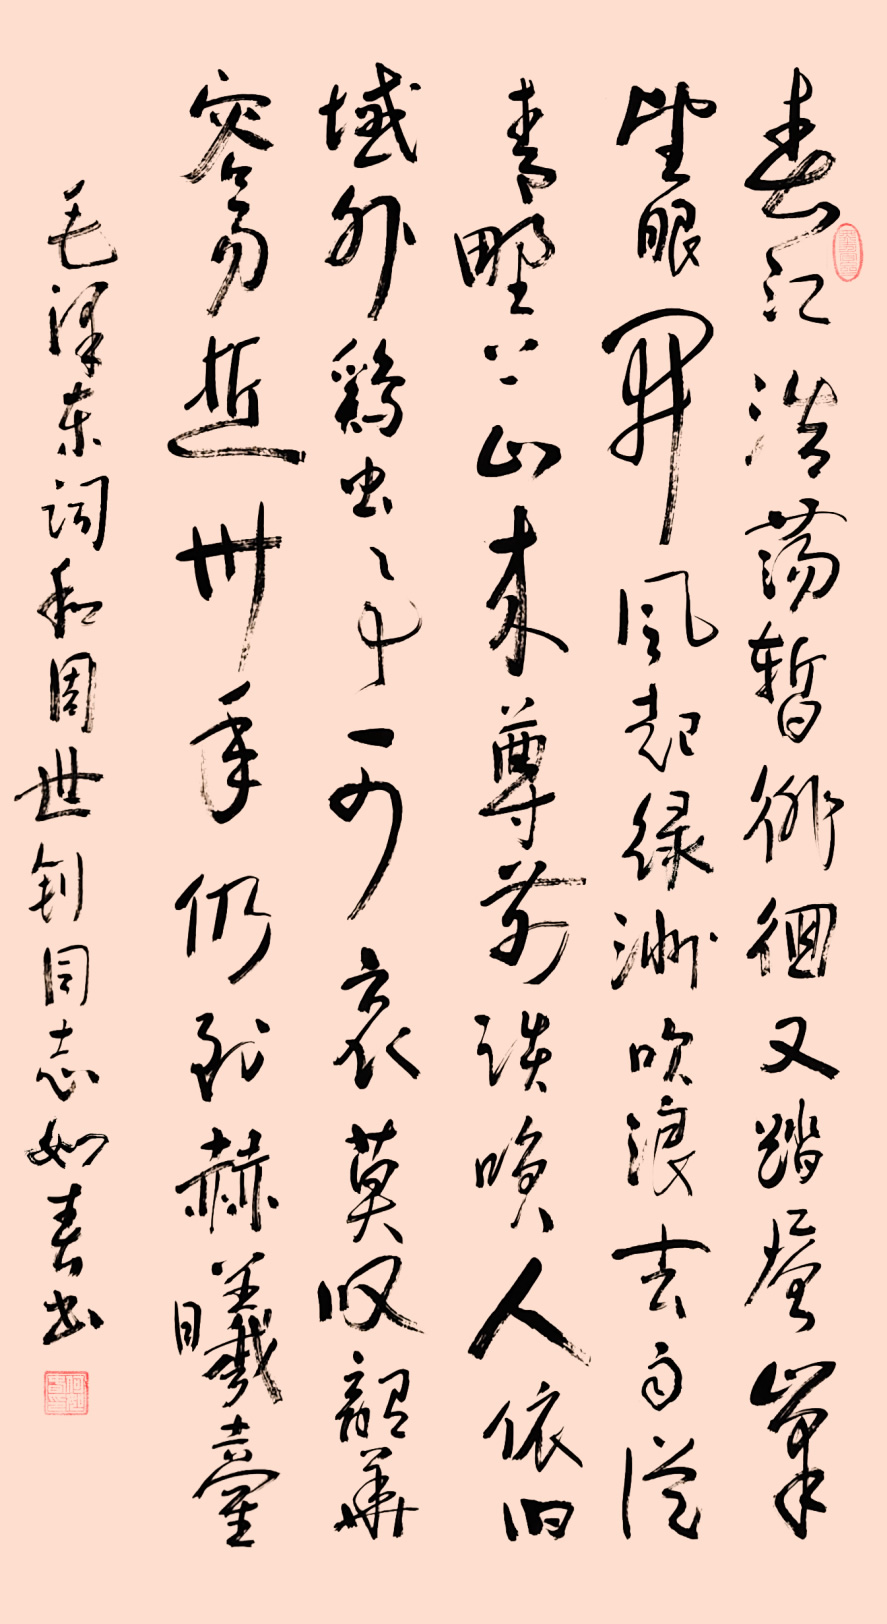 春江浩荡暂徘徊又踏层峰
望眼开风起绿洲吹浪去雨从
青野上山来尊前谈笑人依旧
域外鸡虫事可哀莫叹韶华
容易逝卅年仍到赫曦臺
毛泽东词和周世钊同志如春书